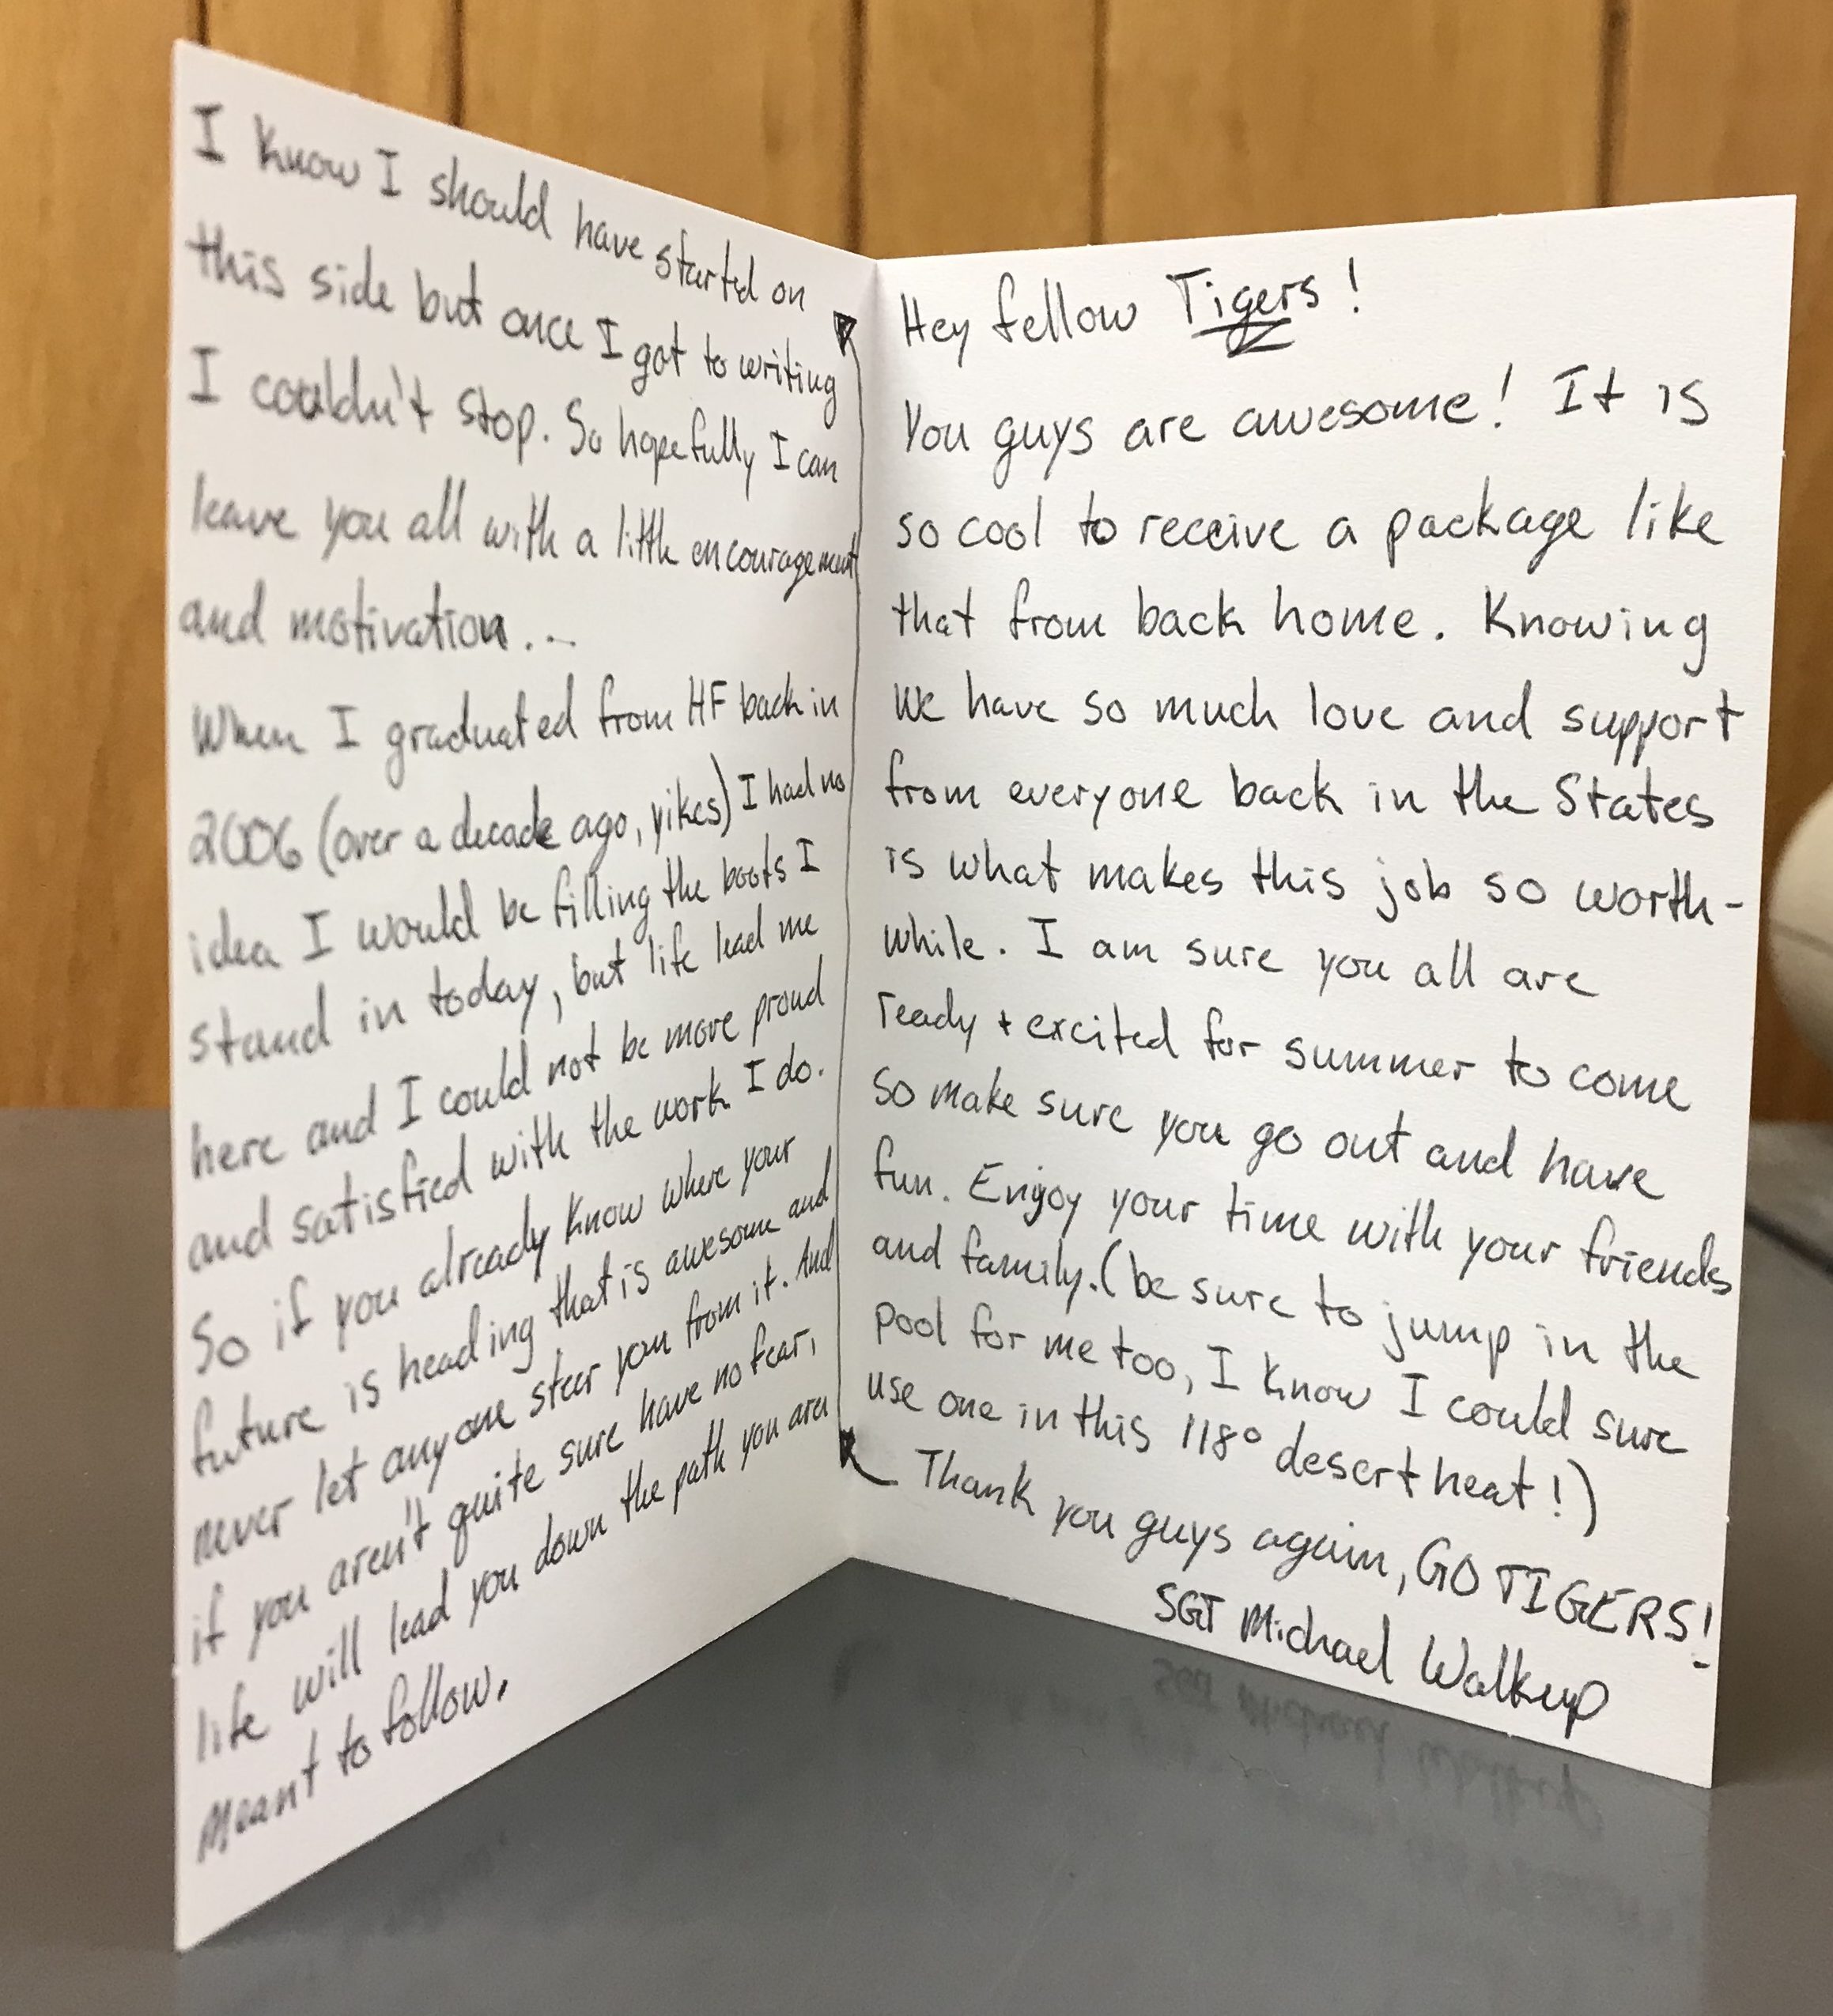 Hey fellow Tigers!
You guys are awesome! It is
so cool to receive a package like
that from back home. Knowing
we have so much love and support
from everyone back in the States
is what makes this job so worth-
while. I am sure you all are
ready + excited for summer to come
so make sure you go out and have
fun. Enjoy your time with your friends
and family. (be sure to jump in the
pool for me too, I know I could sure
use one in this 118° desert heat!)
Thank you guys again, GO TIGERS!
SGT Michael Walkup
I know I should have started on
this side but once I got to writing
I couldn't stop. So hopefully I can
leave you all with a little encouragement
and motivation...
When I graduated from HF back in
2006 (over a decade ago, yikes) I had no
idea I would be filling the boots I
stand in today, but life lead me
here and I could not be more proud
and satisfied with the work I do.
So if you already know where your
future is heading that is awesome and
never let anyone steer you from it. And
if you aren't quite sure have no fear,
life will lead you down the path you are
meant to follow.